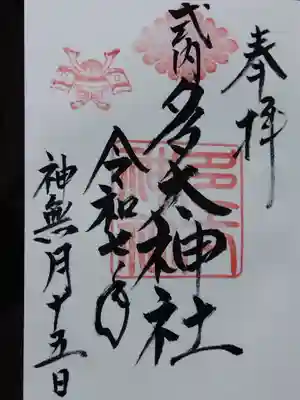 奉拝
式内多太神社
令和七年
神無月十五日